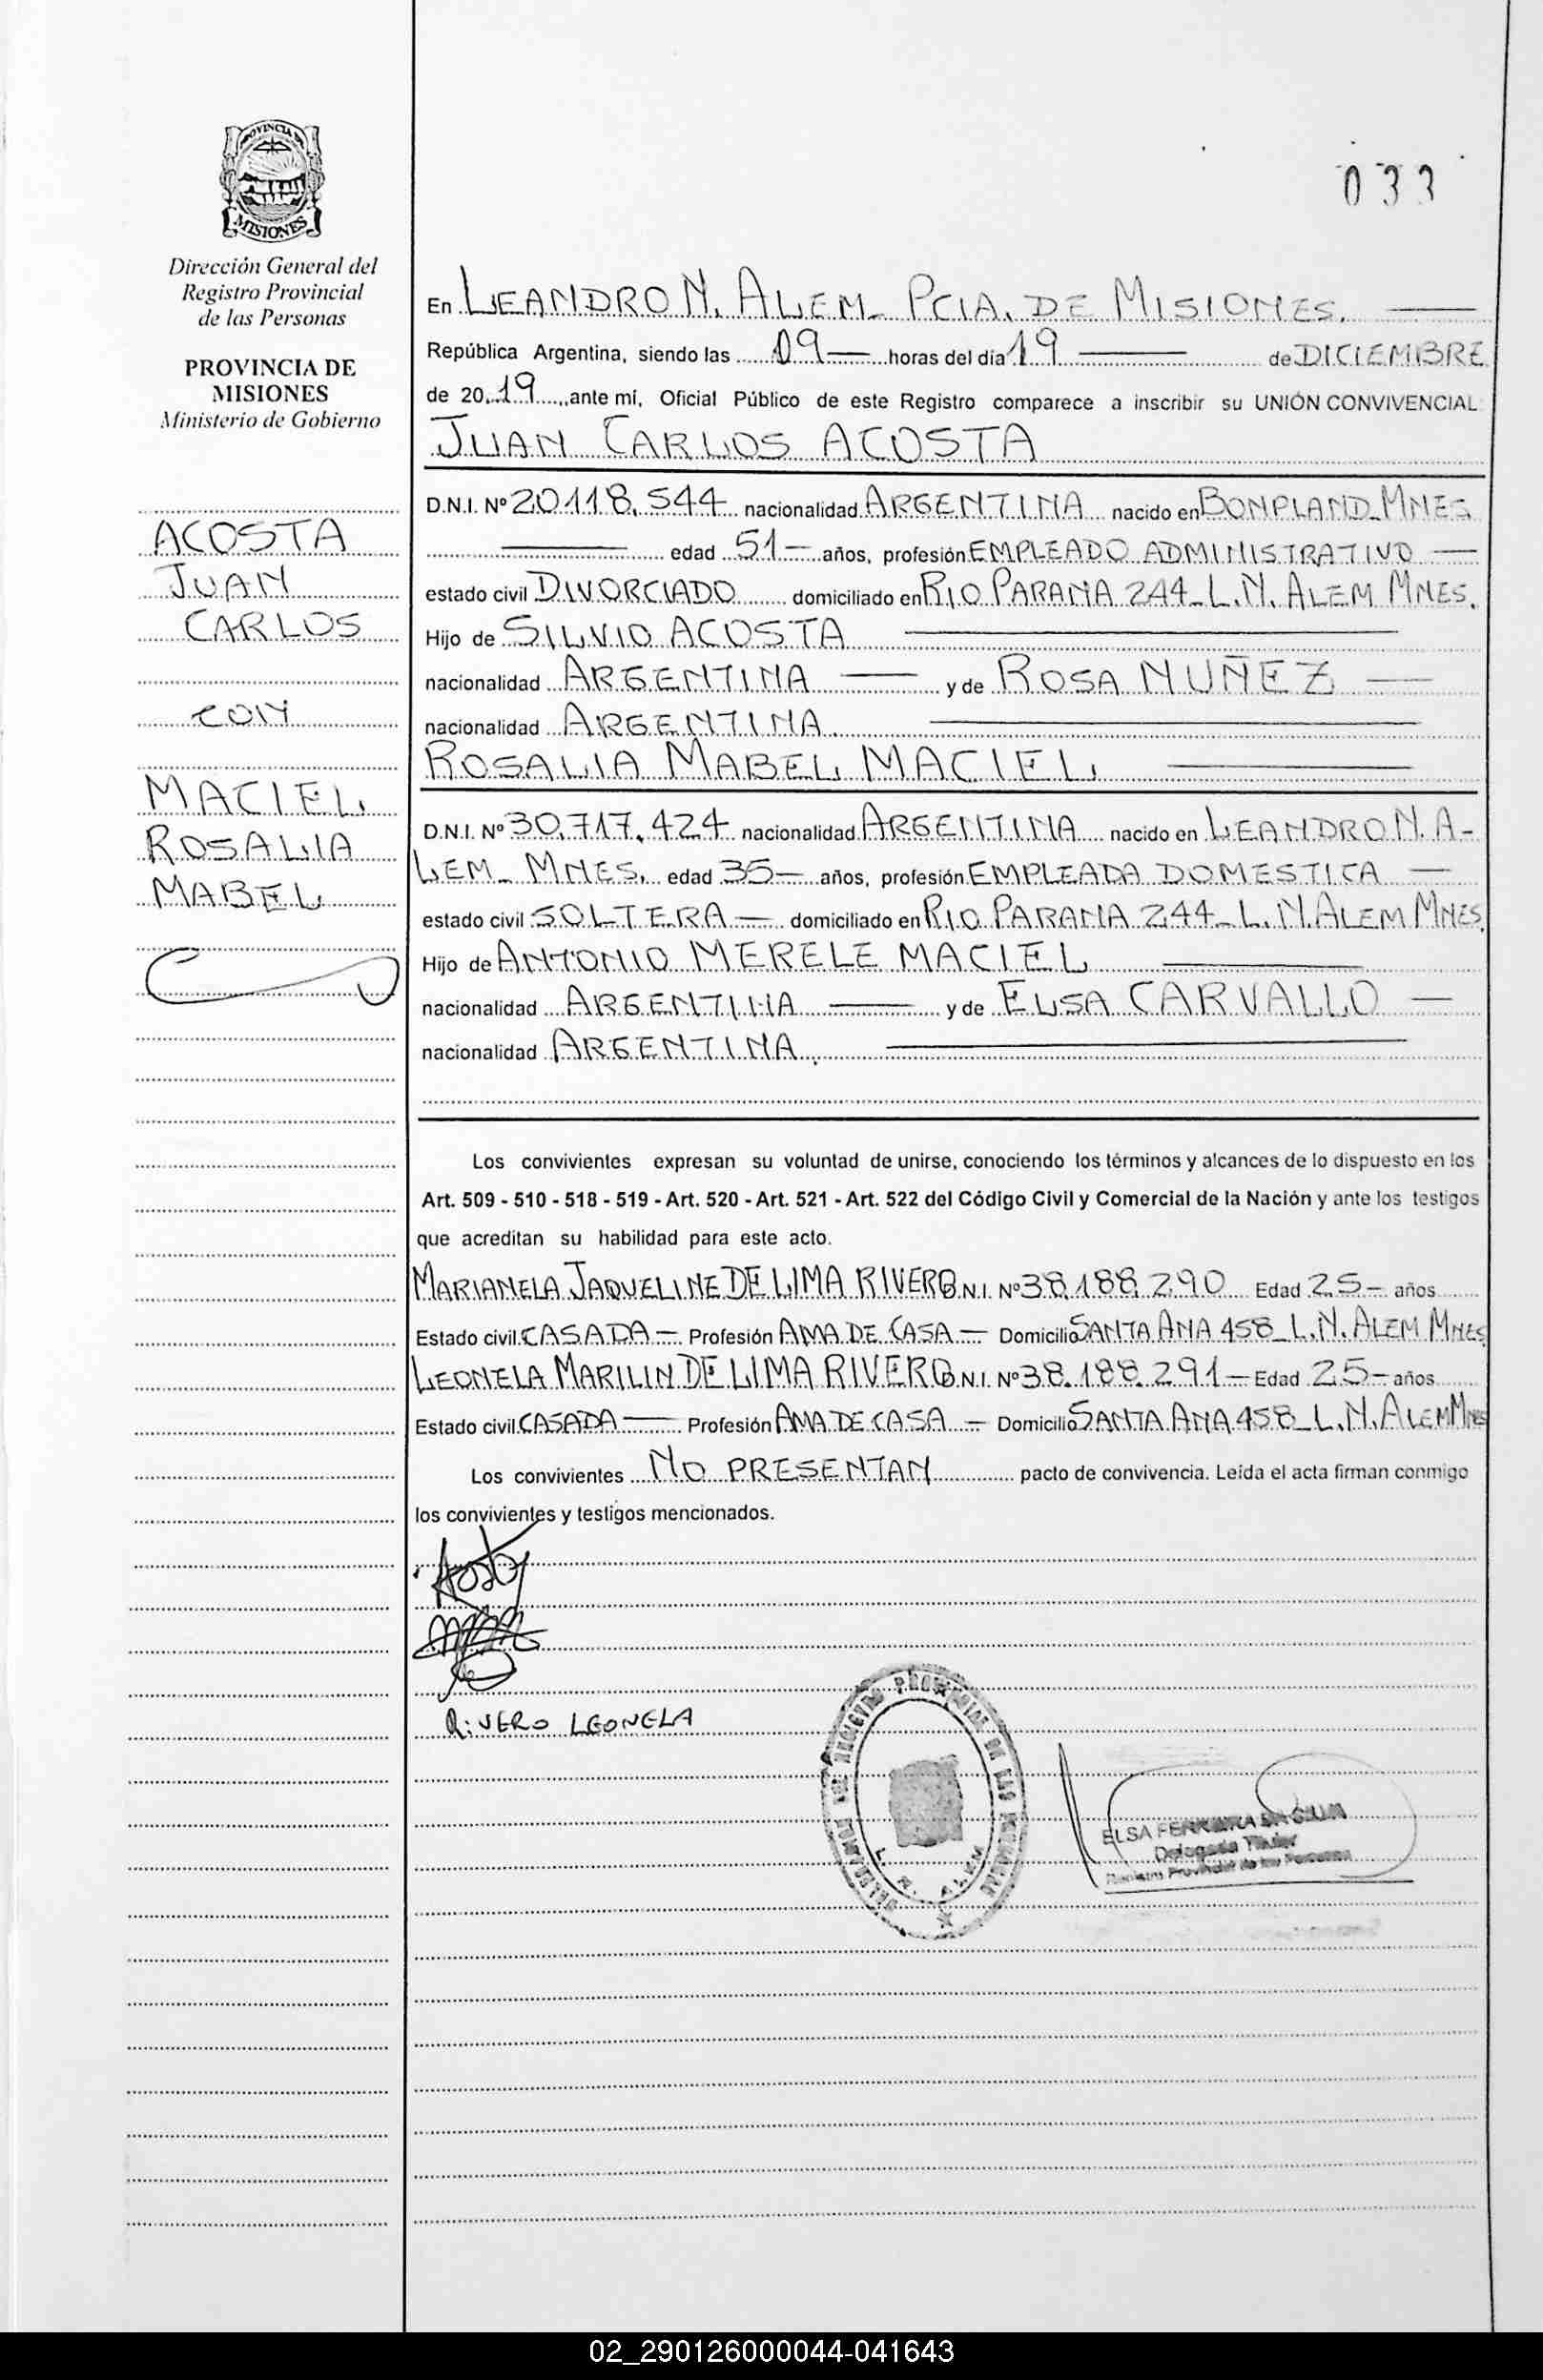 PROVINCIA DE
MISIONES
Dirección General del
Registro Provincial
de las Personas
PROVINCIA DE
MISIONES
Ministerio de Gobierno
ACOSTA
JUAN
CARLOS
CON
MACIEL
ROSALIA
MABEL
033
En LEANDRO N. ALEM_ PCIA. DE MISIONES.
República Argentina, siendo las 09 horas del día 19 de DICIEMBRE
de 2019 ante mi, Oficial Público de este Registro comparece a inscribir su UNIÓN CONVIVENCIAL
JUAN CARLOS ACOSTA
D.N.I. Nº 20.118.544 nacionalidad ARGENTINA nacido en BONPLAND_MNES
edad 51 años, profesión EMPLEADO ADMINISTRATIVO
estado civil DIVORCIADO domiciliado en RIO PARANA 244_L.N. ALEM MNES.
Hijo de SILVIO ACOSTA
nacionalidad ARGENTINA y de ROSA NUÑEZ
nacionalidad ARGENTINA.
ROSALIA MABEL MACIEL
D.N.I. Nº 30.717.424 nacionalidad ARGENTINA nacido en LEANDRO N. A-
LEM_ MNES. edad 35 años, profesión EMPLEADA DOMESTICA
estado civil SOLTERA domiciliado en RIO PARANA 244_L.N. ALEM MNES.
Hijo de ANTONIO MERELE MACIEL
nacionalidad ARGENTINA y de ELSA CARVALLO
nacionalidad ARGENTINA.
Los convivientes expresan su voluntad de unirse, conociendo los términos y alcances de lo dispuesto en los
Art. 509 - 510 - 518 - 519 - Art. 520 - Art. 521 - Art. 522 del Código Civil y Comercial de la Nación y ante los testigos
que acreditan su habilidad para este acto.
MARIANELA JAQUELINE DE LIMA RIVERO D.N.I. Nº 38.188.290 Edad 25 años
Estado civil CASADA Profesión AMA DE CASA Domicilio SANTA ANA 458_L.N. ALEM MNES
LEONELA MARILIN DE LIMA RIVERO D.N.I. Nº 38.188.291 Edad 25 años
Estado civil CASADA Profesión AMA DE CASA Domicilio SANTA ANA 458_L.N. ALEM MNES
Los convivientes NO PRESENTAN pacto de convivencia. Leída el acta firman conmigo
los convivientes y testigos mencionados.
RiVERO LEONELA
L. N. ALEM
ELSA FERREIRA DA SILVA
Delegada Titular
Registro Provincial de las Personas
02_290126000044-041643